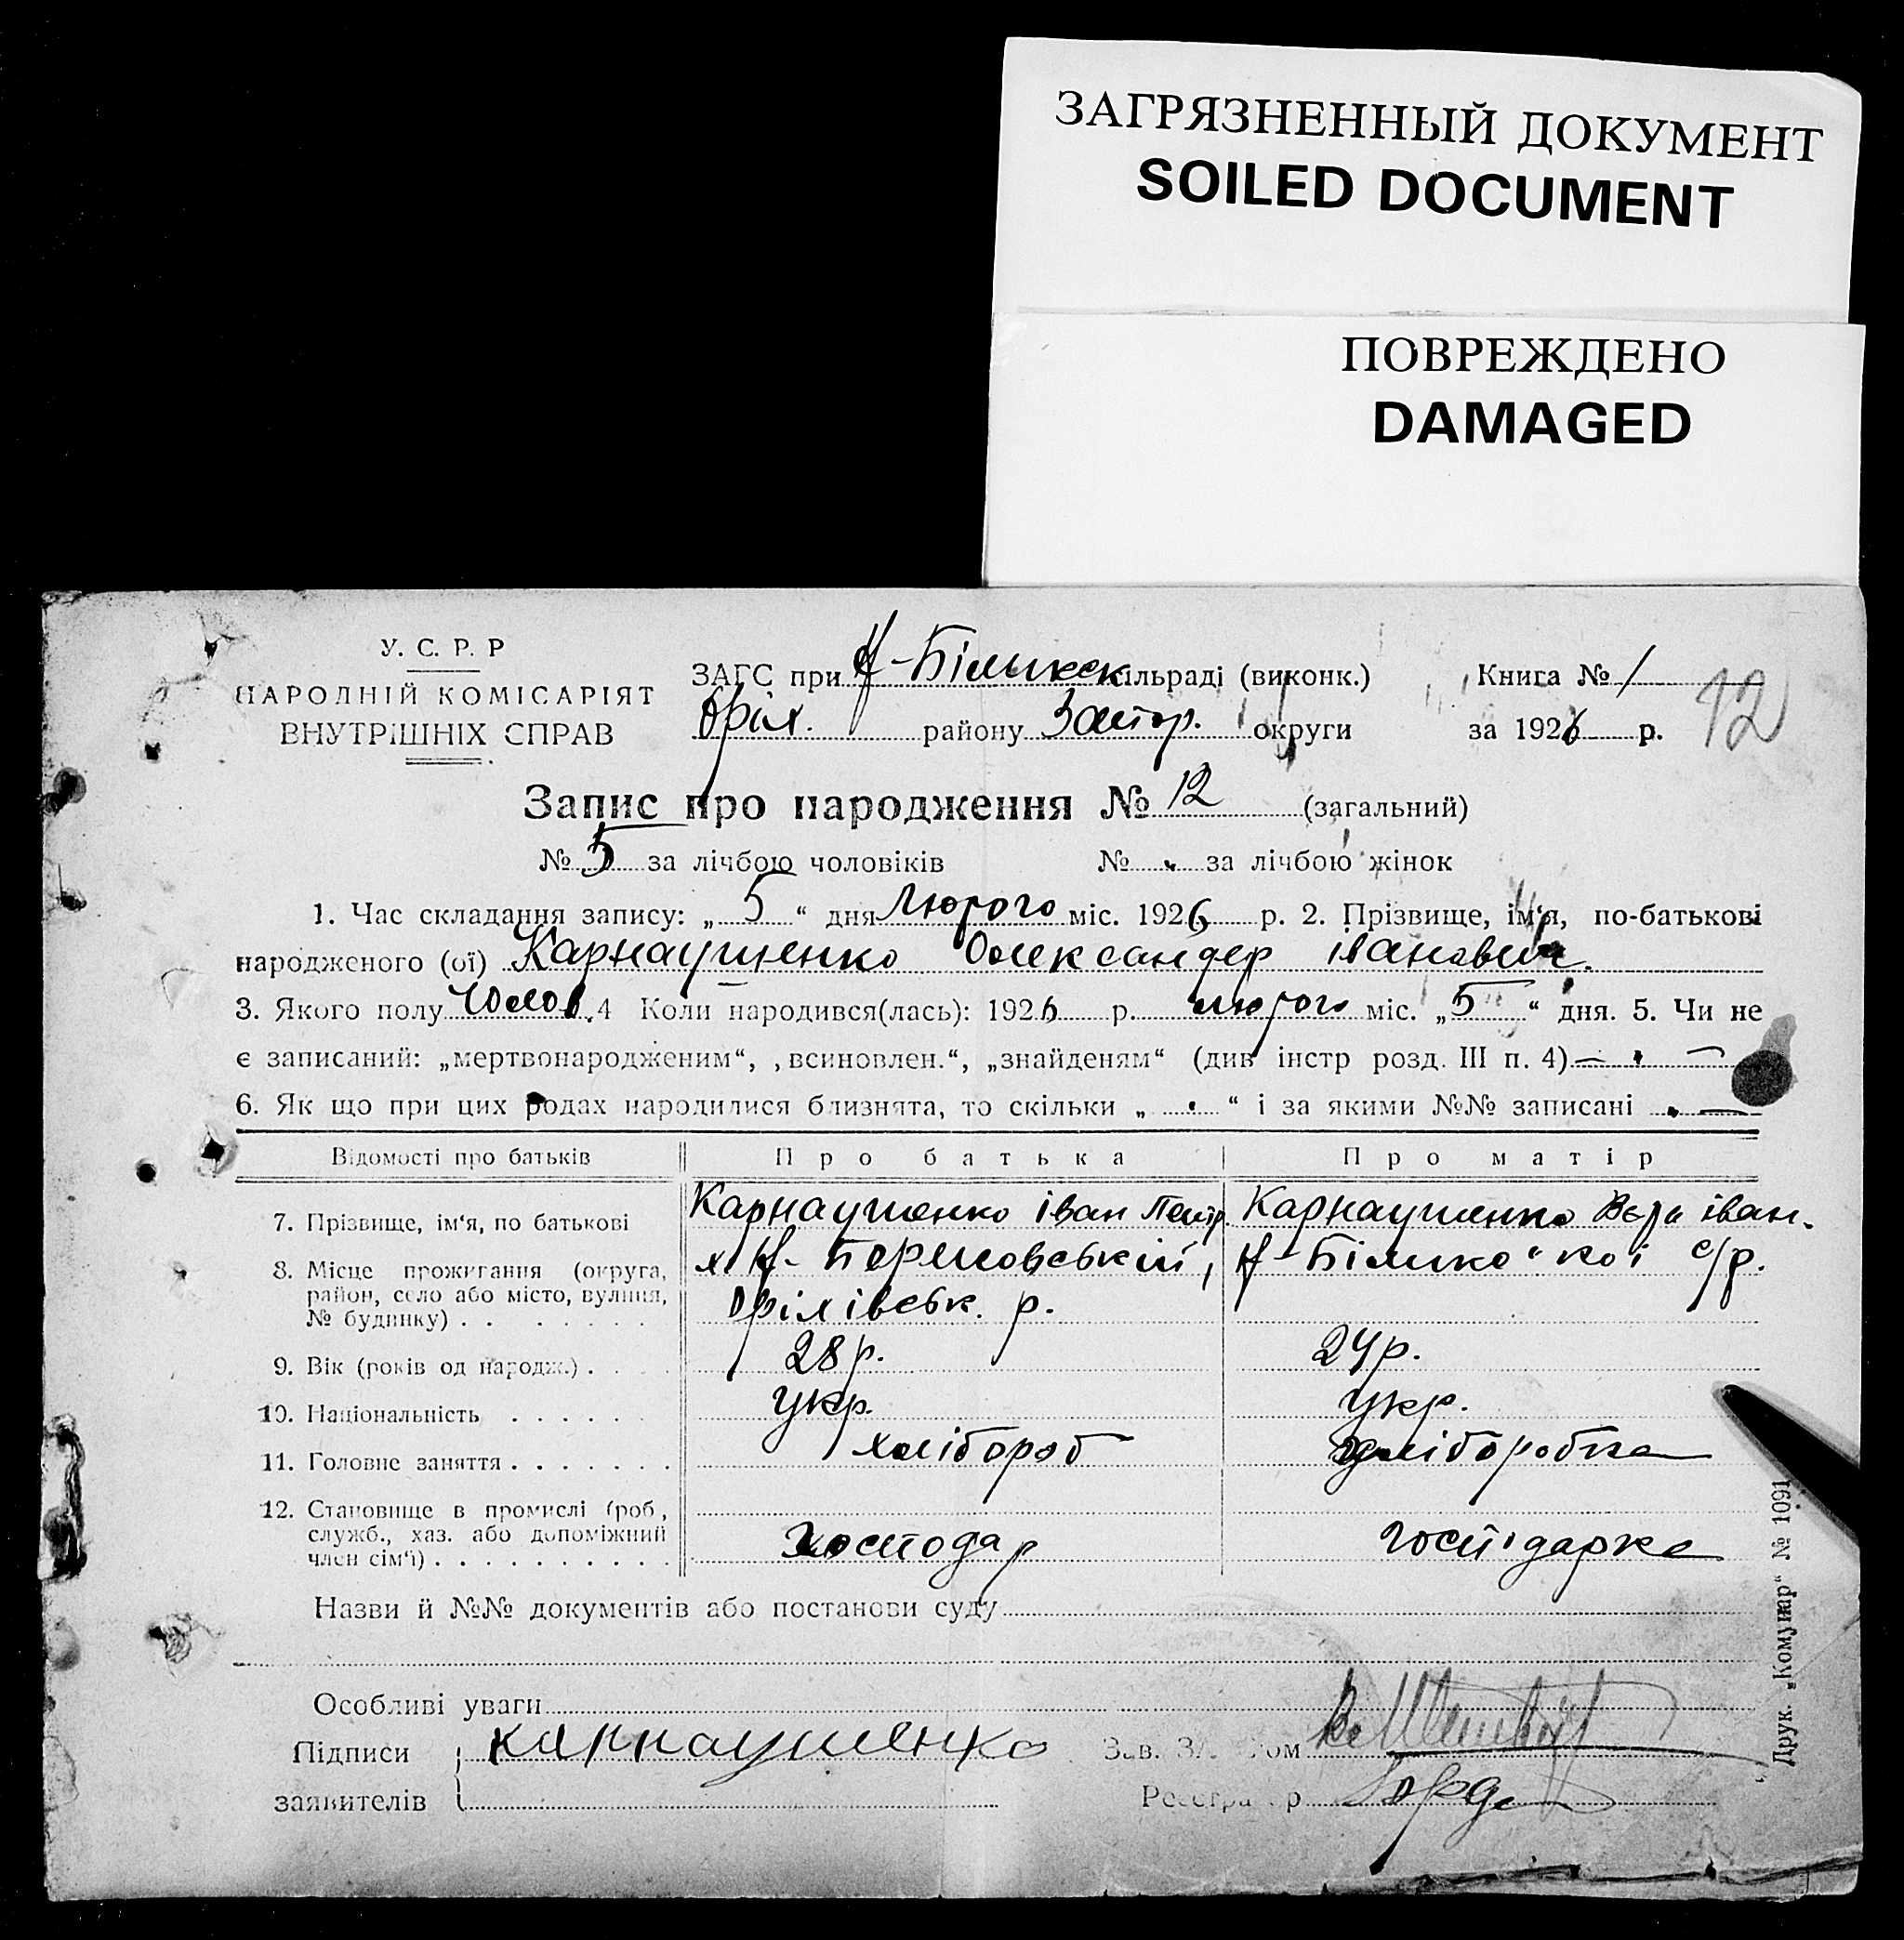 ЗАГРЯЗНЕННЫЙ ДОКУМЕНТ
SOILED DOCUMENT
ПОВРЕЖДЕНО
DAMAGED
У. С. Р. Р
НАРОДНІЙ КОМІСАРІЯТ
ВНУТРІШНІХ СПРАВ
ЗАГС при Н-Біликск ільраді (виконк.) Книга № 1
Оріх. району Запор. округи за 1926 р. 12
Запис про народження № 12 (загальний)
№ 5 за лічбою чоловіків № за лічбою жінок
1. Час складання запису: „ 5 “ дня Люрого міс. 1926 р. 2. Прізвище, ім'я, по-батькові
народженого (ої) Карнаушенко Олександер іванович.
3. Якого полу Чолов. 4 Коли народився(лась): 1926 р. люрого міс. „ 5 “ дня. 5. Чи не
є записаний: „мертвонародженим“, „всиновлен.“, „знайденям“ (див інстр розд. III п. 4) —
6. Як що при цих родах народилися близнята, то скільки „ “ і за якими №№ записані —
Відомості про батьків Про батька Про матір
7. Прізвище, ім'я, по батькові Карнаушенко іван Петр. Карнаушенко Вєра іван.
8. Місце прожигання (округа, район, село або місто, вулиця, № будинку) х. Н- , Оріхівськ. р. Н- с/р.
9. Вік (років од народж.) 28 р. 24 р.
10. Національність укр. укр.
11. Головне заняття хлібороб хліборобка
12. Становище в промислі (роб, служб., хаз. або допоміжний член сім'ї) господар господарка
Назви й №№ документів або постанови суду
Особливі уваги
Підписи карнаушенко Зав. ЗАГСом
заявителів Реєстратор
Друк. „Комунар“ № 1091